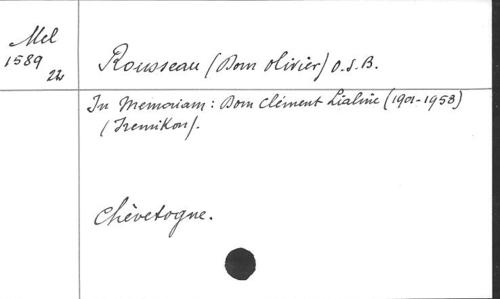 Mel
1589
22
Rousseau (Dom Olivier) O.S.B.
In Memoriam: Dom Clément Lialine (1901-1958)
(Irenikon).
Chèvetogne.